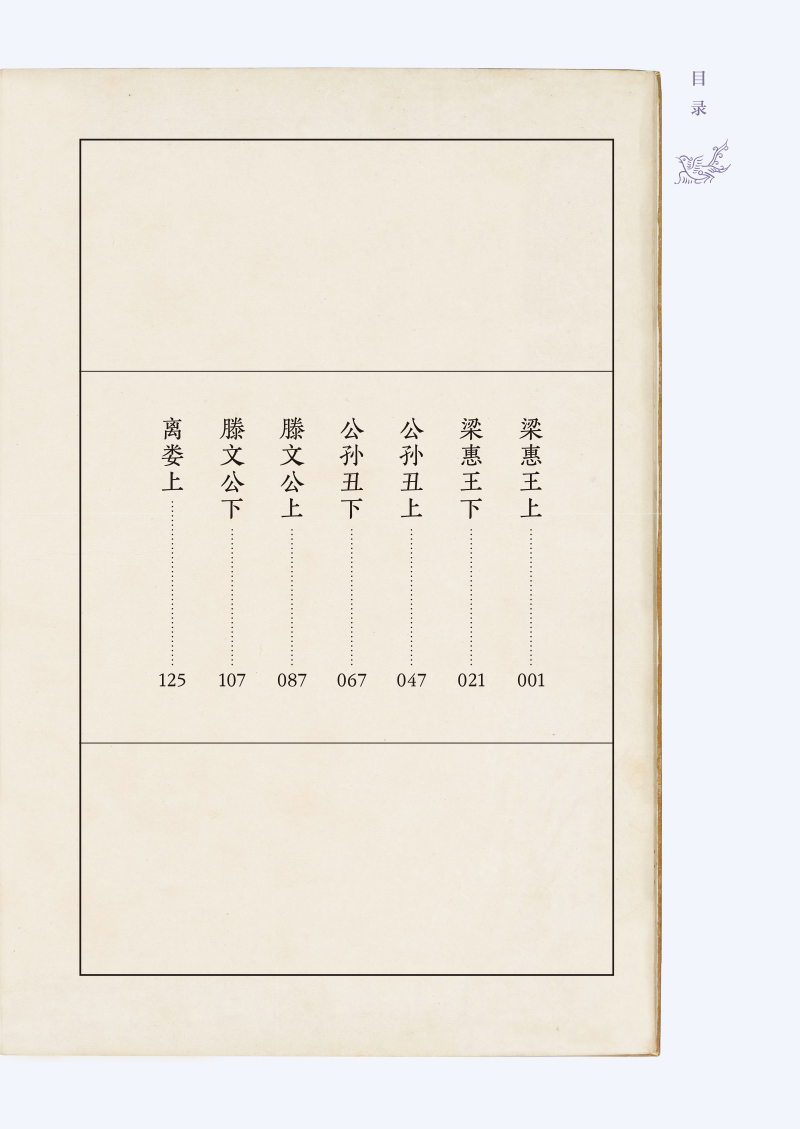 目录
梁惠王上 001
梁惠王下 021
公孙丑上 047
公孙丑下 067
滕文公上 087
滕文公下 107
离娄上 125